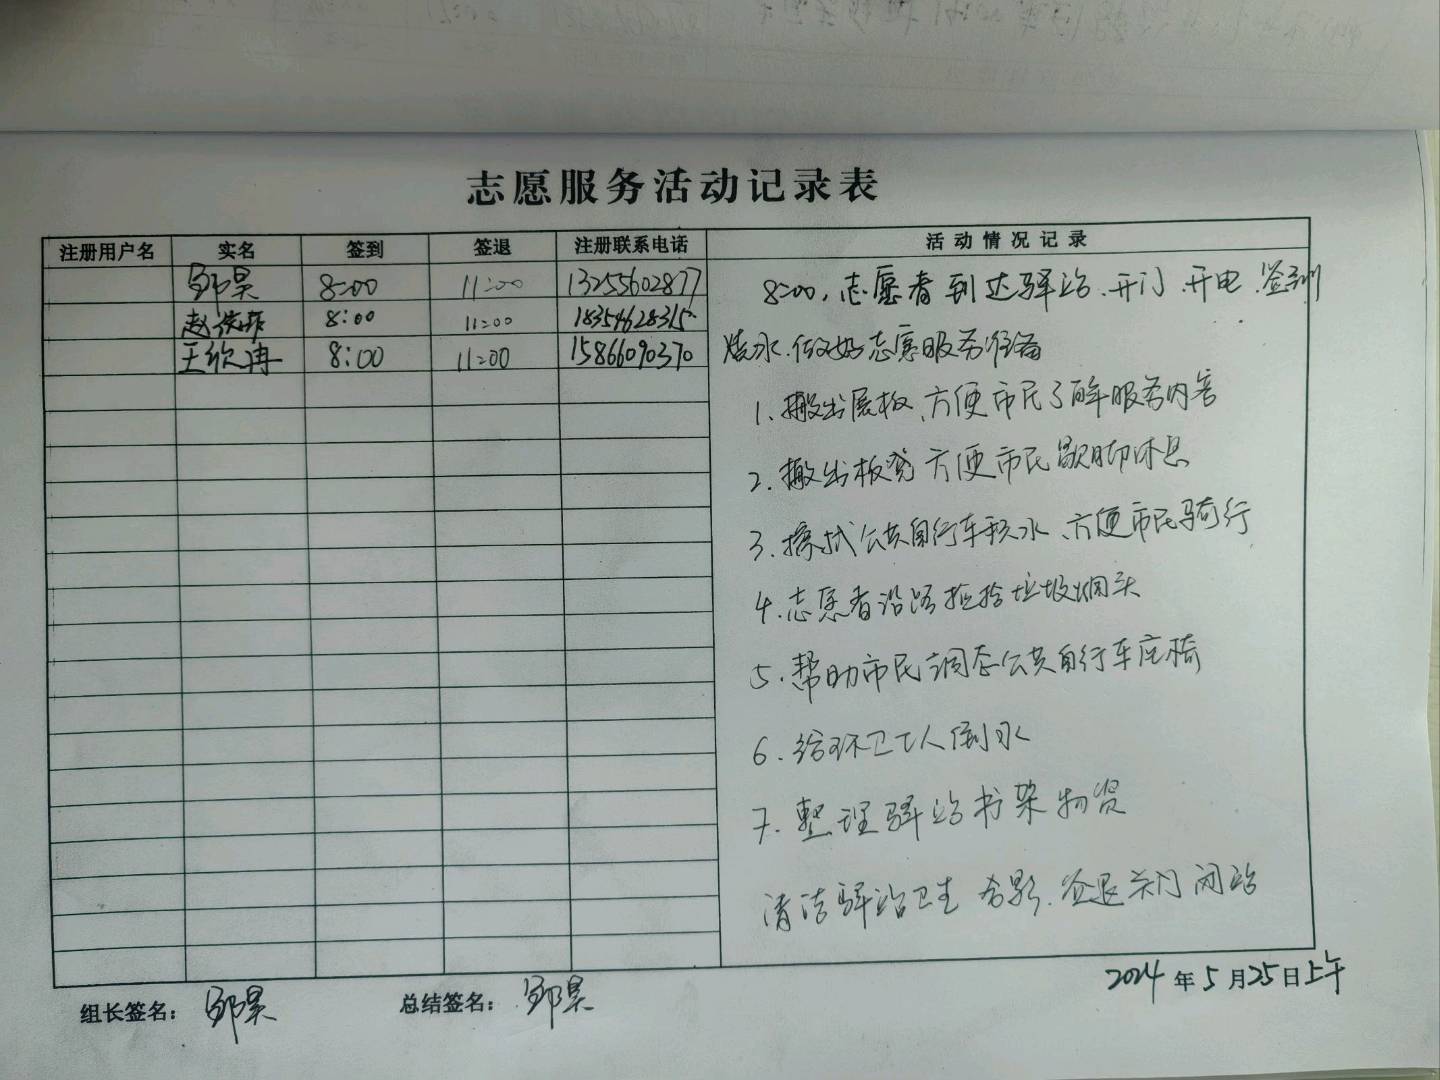 志愿服务活动记录表
注册用户名 实名 签到 签退 注册联系电话 活动情况记录
邹昊 8:00 11:00 13255602877
赵 8:00 11:00 18354628315
王欣冉 8:00 11:00 15866090370
8:00，志愿者到达驿站、开门、开电、签到
烧水、做好志愿服务准备
1、搬出展板、方便市民了解服务内容
2、搬出板凳 方便市民歇脚休息
3、擦拭公共自行车积水、方便市民骑行
4、志愿者沿路捡拾垃圾烟头
5、帮助市民调态公共自行车座椅
6、给环卫工人倒水
7、整理驿站书架物资
清洁驿站卫生 合影、签退关门闭站
2024年5月25日上午
组长签名：邹昊 总结签名：邹昊